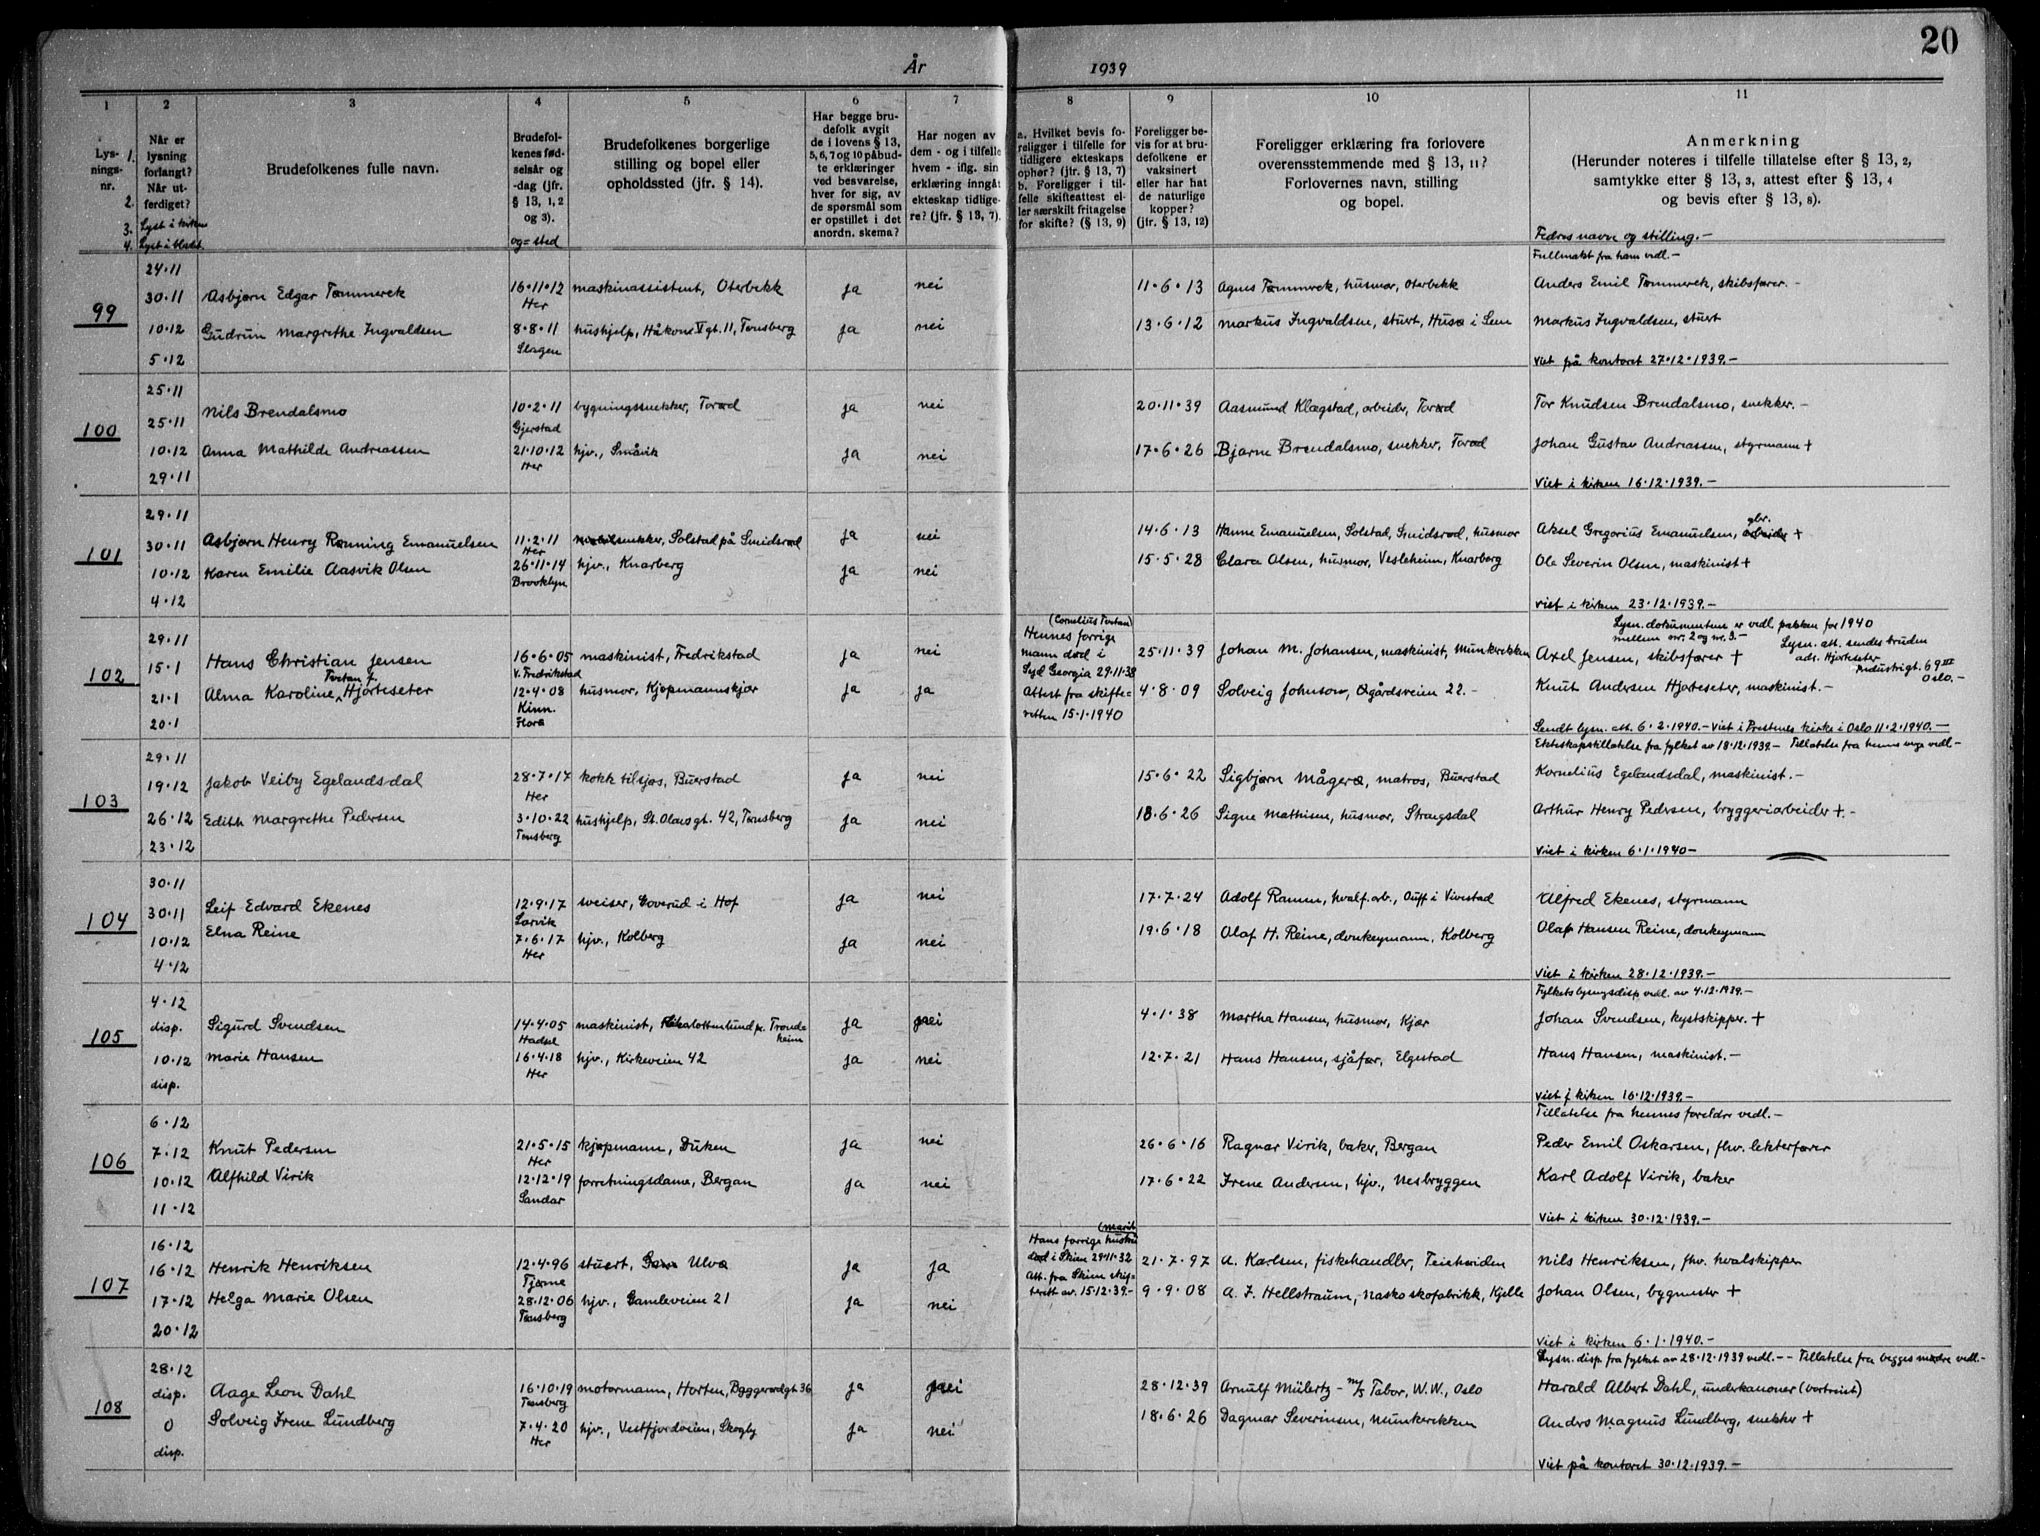 20
År 1939
1 2 3 4 5 6 7 8 9 10 11
Lys-
nings-
nr.
1.
2.
3.
4.
Når er
lysning
forlangt?
Når ut-
ferdiget?
Lyst i kirken
Lyst i bladet
Brudefolkenes fulle navn.
Brudefol-
kenes fød-
selsår og
-dag (jfr.
§ 13, 1, 2
og 3).
og = sted
Brudefolkenes borgerlige
stilling og bopel eller
opholdssted (jfr. § 14).
Har begge bru-
defolk avgit
de i lovens § 13,
5, 6, 7 og 10 påbud-
te erklæringer
ved besvarelse,
hver for sig, av
de spørsmål som
er opstillet i det
anordn. skema?
Har nogen av
dem - og i tilfelle
hvem - iflg. sin
erklæring inngåt
ekteskap tidlige-
re? (jfr. § 13, 7).
a. Hvilket bevis fo-
religger i tilfelle for
tidligere ekteskaps
ophør? (jfr. § 13, 7)
b. Foreligger i til-
felle skifteattest el-
ler særskilt fritagelse
for skifte? (§ 13, 9)
Foreligger be-
vis for at bru-
defolkene er
vaksinert
eller har hat
de naturlige
kopper?
(jfr. § 13, 12)
Foreligger erklæring fra forlovere
overensstemmende med § 13, 11?
Forlovernes navn, stilling
og bopel.
Anmerkning
(Herunder noteres i tilfelle tillatelse efter § 13, 2,
samtykke efter § 13, 3, attest efter § 13, 4
og bevis efter § 13, 8).
Fedres navne og stilling.-
99
24·11
30·11
10·12
5·12
Asbjørn Edgar Tømmerek
Gudrun Margrethe Ingvaldsen
16·11·12
Her
8·8·11
Slagen
maskinassistent, Oterbekk
hushjelp, Håkon V gt. 11, Tønsberg
ja
ja
nei
nei
11·6·13
13·6·12
Agnes Tømmerek, husmor, Oterbekk
Markus Ingvaldsen, stuert, Husø i Sem
Fullmakt fra ham vedl.-
Anders Emil Tømmerek, skibsfører.-
Markus Ingvaldsen, stuert
Viet på kontoret 27·12·1939.-
100
25·11
25·11
10·12
29·11
Nils Brendalsmo
Anna Mathilde Andreassen
10·2·11
Gjerstad
21·10·12
Her
bygningssnekker, Torød
hjv., Småvik
ja
ja
nei
nei
20·11·39
17·6·26
Aasmund Klægstad, arbeider, Torød
Bjarne Brendalsmo, snekker, Torød
Tor Knudsen Brendalsmo, snekker.-
Johan Gustav Andreassen, styrmann +
Viet i kirken 16·12·1939.-
101
29·11
30·11
10·12
4·12
Asbjørn Henry Rønning Emanuelsen
Karen Emilie Aasvik Olsen
11·2·11
Her
26·11·14
Brooklyn
møbelsnekker, Solstad på Smidsrød
hjv., Knarberg
ja
ja
nei
nei
14·6·13
15·5·28
Hanne Emanuelsen, Solstad, Smidsrød, husmor
Clara Olsen, husmor, Vesleheim, Knarberg
gbr.
Aksel Gregorius Emanuelsen, arbeider +
Ole Severin Olsen, maskinist +
Viet i kirken 23·12·1939.-
102
29·11
15·1
21·1
20·1
Hans Christian Jensen
Tvetan f.
Alma Karoline Hjorteseter
16·6·05
V. Fredrikstad
12·4·08
Kinn.
Florø
maskinist, Fredrikstad
husmor, Kjøpmannskjær
ja
ja
nei
ja
(Cornelius Tvetan)
Hennes forrige
mann død i
Syd Georgia 29·11·38
Attest fra skifte=
retten 15·1·1940
25·11·39
4·8·09
Johan M. Johansen, maskinist, Munkerekken
Solveig Johnson, Øgårdsveien 22.-
Lysn. dokumentene er vedl. pakken for 1940
mellem nr. 2 og nr. 3.-
Lysn. att. sendes bruden
adr. Hjorteseter
Industrigt. 69 III
Oslo.-
Axel Jensen, skibsfører +
Knut Andersen Hjorteseter, maskinist.-
Sendt lysn. att. 6·2·1940.- Viet i Prestenes kirke i Oslo 11·2·1940.-
103
29·11
19·12
26·12
23·12
Jakob Veiby Egelandsdal
Edith Margrethe Pedersen
28·7·17
Her
3·10·22
Tønsberg
kokk tilsjøs, Buerstad
hushjelp, St. Olavsgt. 42, Tønsberg
ja
ja
nei
nei
15·6·22
18·6·26
Sigbjørn Mågerø, matros, Buerstad
Signe Mathisen, husmor, Strengsdal
Ekteskapstillatelse fra fylket av 18·12·1939.- Tillatelse fra hennes verge vedl.-
Kornelius Egelandsdal, maskinist.-
Arthur Henry Pedersen, bryggeriarbeider +.-
Viet i kirken 6·1·1940-
104
30·11
30·11
10·12
4·12
Leif Edvard Ekenes
Elna Reine
12·9·17
Larvik
7·6·17
Her
sveiser, Goverud i Hof
hjv., Kolberg
ja
ja
nei
nei
17·7·24
19·6·18
Adolf Ramm, hvalf.arb., Auff i Vivestad
Olaf H. Reine, donkeymann, Kolberg
Alfred Ekenes, styrmann
Olaf Hansen Reine, donkeymann
Viet i kirken 28·12·1939.-
105
4·12
disp.
10·12
disp.
Sigurd Svendsen
Marie Hansen
14·4·05
Hadsel
16·4·18
Her
maskinist, Charlottenlund pr. Trond-
heim
hjv., Kirkeveien 42
ja
ja
nei
nei
4·1·38
12·7·21
Martha Hansen, husmor, Kjær
Hans Hansen, sjåfør, Elgestad
Fylkets lysningsdisp. vedl. av 4·12·1939.-
Johan Svendsen, kystskipper. +
Hans Hansen, maskinist.-
Viet i kirken 16·12·1939.-
106
6·12
7·12
10·12
11·12
Knut Pedersen
Alfhild Virik
21·5·15
Her
12·12·19
Sandar
kjøpmann, Duken
forretningsdame, Bergan
ja
ja
nei
nei
26·6·16
17·6·22
Ragnar Virik, baker, Bergan
Irene Andersen, hjv., Nesbryggen
Tillatelse fra hennes foreldre vedl.-
Peder Emil Oskarsen, fhv. lekterfører
Karl Adolf Virik, baker
Viet i kirken 30·12·1939.-
107
16·12
16·12
17·12
20·12
Henrik Henriksen
Helga Marie Olsen
12·4·96
Tjøme
28·12·06
Tønsberg
stuert, Ulvø
hjv., Gamleveien 21
ja
ja
ja
nei
(Marit
Hans forrige hustru
død i Skien 29·11·32
Att. fra Skien skif=
terett av. 15·12·39.-
21·7·97
9·9·08
A. Karlsen, fiskehandler, Teieheiden
A. F. Hellstraum, Nasko skofabrikk, Kjelle
Nils Henriksen, fhv. hvalskipper
Johan Olsen, bygmester +
Viet i kirken 6·1·1940.-
108
28·12
disp.
0
disp.
Aage Leon Dahl
Solveig Irene Lundberg
16·10·19
Tønsberg
7·4·20
Her
motormann, Horten, Byggerødgt 36
hjv., Vestfjordveien, Skogly
ja
ja
nei
nei
28·12·39
18·6·26
Arnulf Mülertz - m/s Tabor, W.W., Oslo
Dagmar Severinsen, Munkerekken
Lysn. disp. fra fylket av 28·12·1939 vedl.-- Tillatelse fra begges mødre vedl.-
Harald Albert Dahl, underkanoner (bortreist)
Anders Magnus Lundberg, snekker +
Viet på kontoret 30·12·1939.-